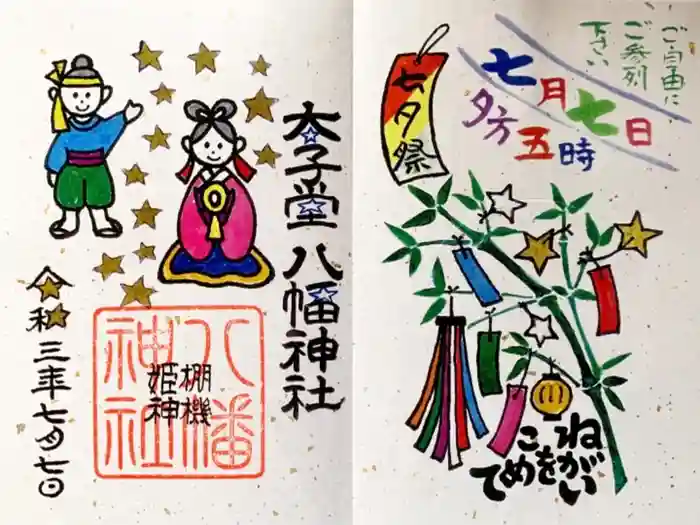 太子堂八幡神社
八幡
神社
棚機
姫神
令和三年七月七日
ご自由に
ご参列
下さい
七月七日
夕方五時
七夕祭
ねがい
をこ
めて